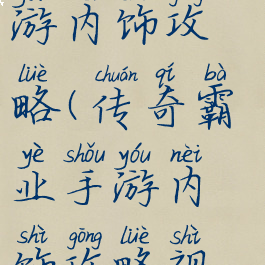 游内饰攻
lüè chuán qí bà
略(传奇霸
yè shǒu yóu nèi
业手游内
shì gōng lüè shì
饰攻略视